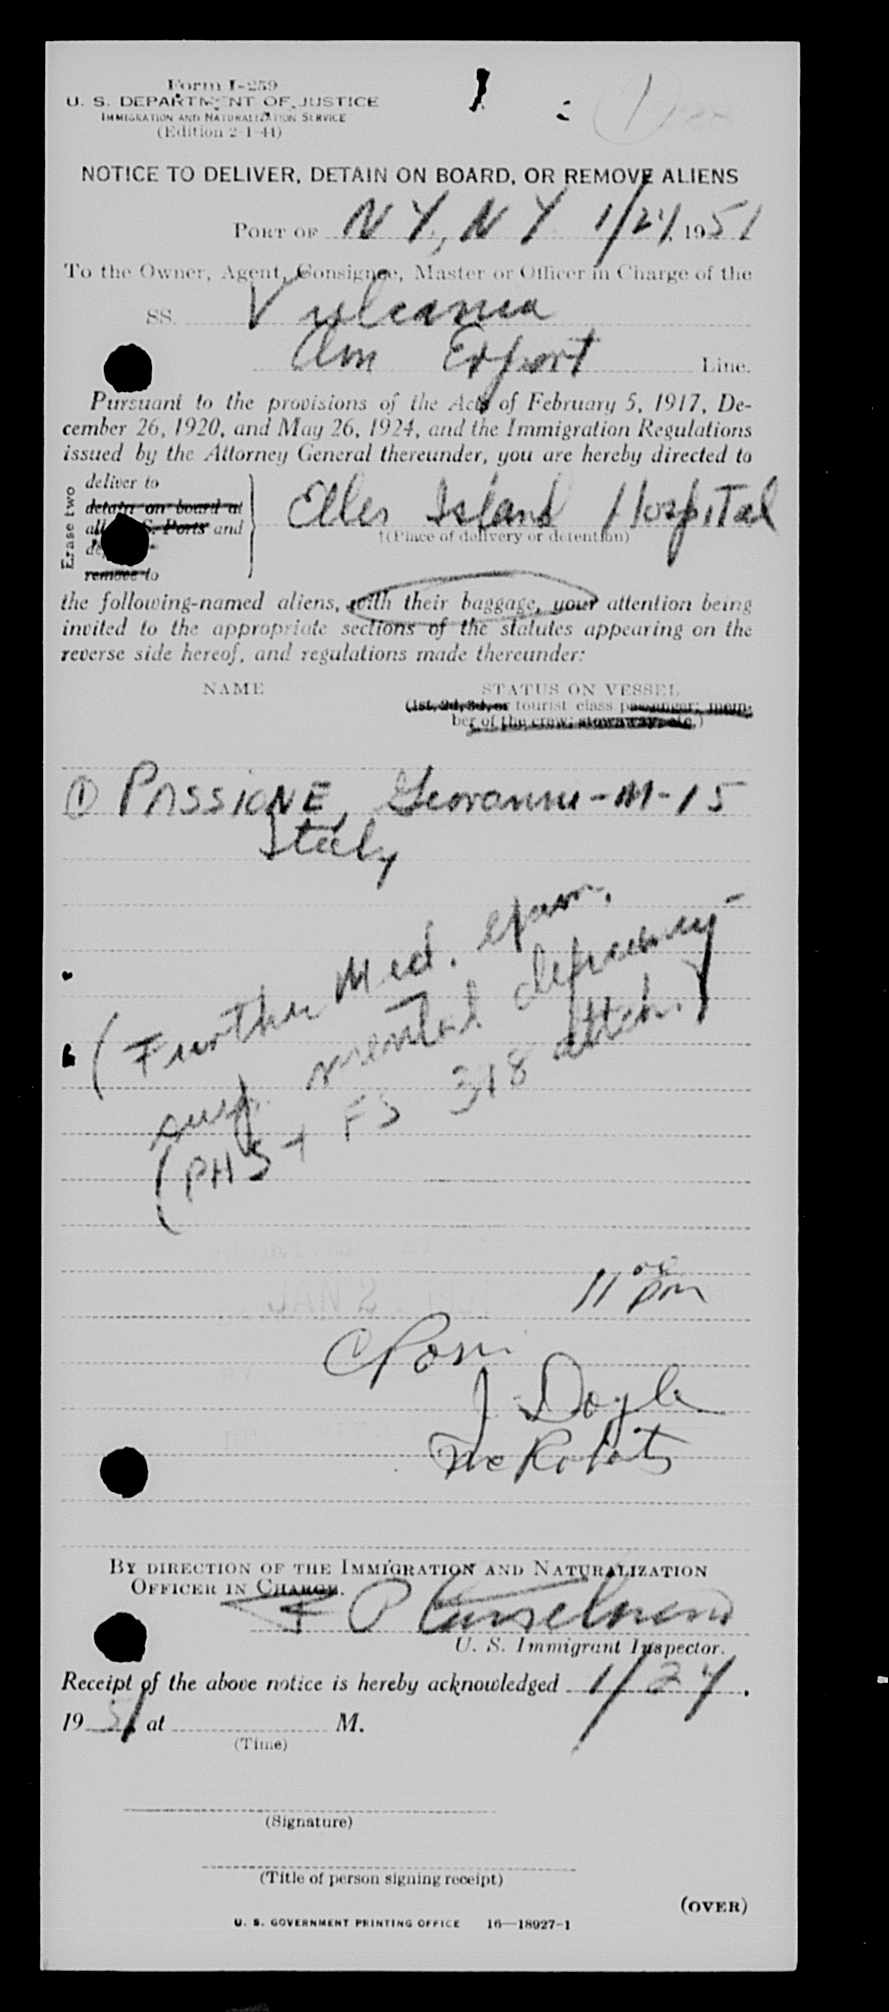 Form I-259
U. S. DEPARTMENT OF JUSTICE
IMMIGRATION AND NATURALIZATION SERVICE
(Edition 2-1-44)
1
NOTICE TO DELIVER, DETAIN ON BOARD, OR REMOVE ALIENS
PORT OF NY, NY 1/24, 1951
To the Owner, Agent, Consignee, Master or Officer in Charge of the
SS. Vulcania
Am Export Line.
Pursuant to the provisions of the Acts of February 5, 1917, De-
cember 26, 1920, and May 26, 1924, and the Immigration Regulations
issued by the Attorney General thereunder, you are hereby directed to
Erase two
deliver to
detain on board at
all U. S. Ports and
remove to
Ellis Island Hospital
†(Place of delivery or detention)
the following-named aliens, with their baggage, your attention being
invited to the appropriate sections of the statutes appearing on the
reverse side hereof, and regulations made thereunder:
NAME STATUS ON VESSEL
(1st, 2d, 3d, or tourist class passenger; mem-
ber of the crew; stowaway, etc.)
① PASSIONE, Geovanni - M - 15
Italy
(Further Med. exam.
susp. mental deficiency -
(PHS + FS 318 attch.)
11 00 pm
J Doyle
McRoberts
BY DIRECTION OF THE IMMIGRATION AND NATURALIZATION
OFFICER IN CHARGE.
U. S. Immigrant Inspector.
Receipt of the above notice is hereby acknowledged 1/24,
1951 at M.
(Time)
(Signature)
(Title of person signing receipt)
(OVER)
U. S. GOVERNMENT PRINTING OFFICE 16—18927-1